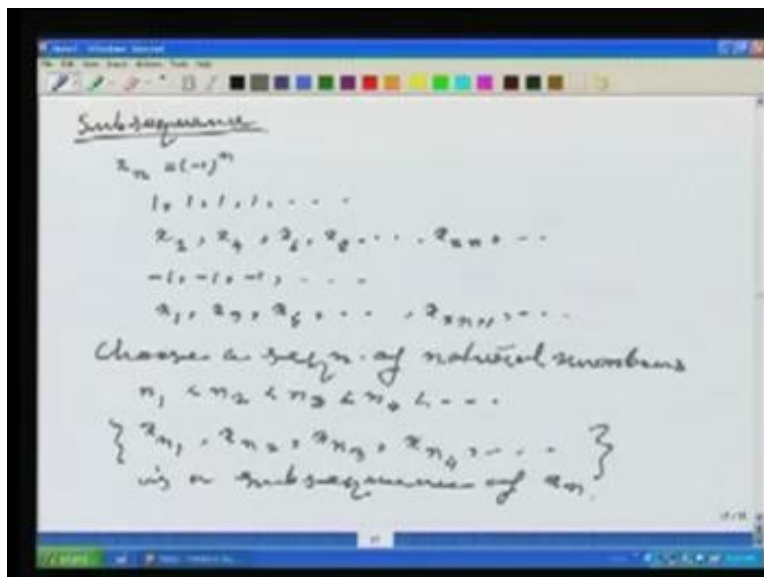 Subsequence
x_n = (-1)^n
1, 1, 1, 1, . . . .
x_2, x_4, x_6, x_8 . . . , x_2n, . . .
-1, -1, -1, . . . .
x_1, x_3, x_5, . . . , x_2n+1, . . . .
Choose a seqn. of natural numbers
n_1 < n_2 < n_3 < n_4 < - - -
{ x_n1, x_n2, x_n3, x_n4, . . . . }
is a subsequence of x_n.